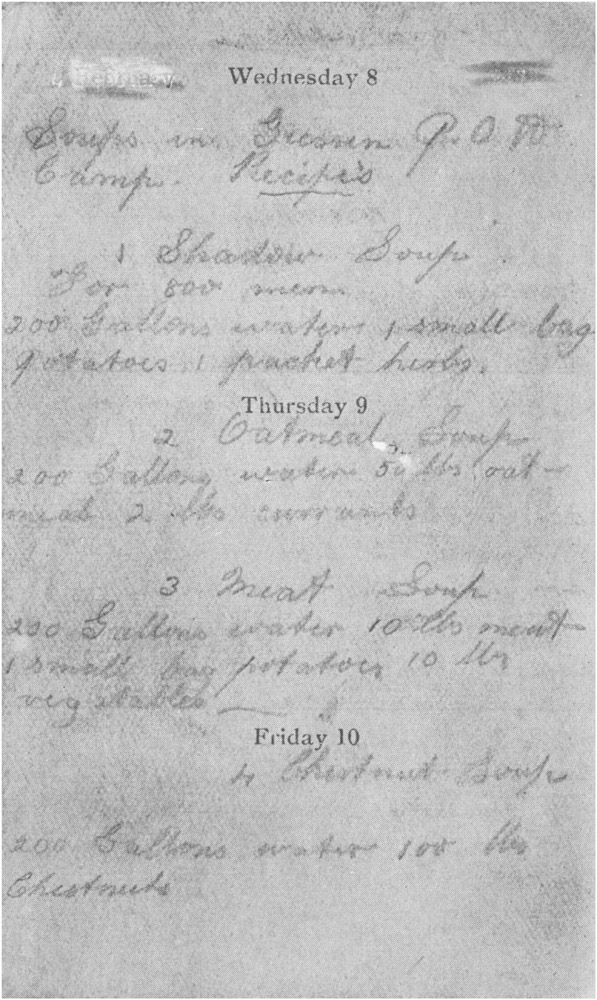 February
Wednesday 8
Soups in Giessen P.O.W
Camp. Recipes
1 Shadow Soup
For 800 men
200 Gallons water 1 small bag
potatoes 1 packet herbs.
Thursday 9
2 Oatmeal Soup
200 Gallons water 50 lbs oat-
meal 2 lbs currants
3 Meat Soup
200 Gallons water 10 lbs meat
1 small bag potatoes 10 lbs
vegetables
Friday 10
4 Chestnut Soup
200 Gallons water 100 lbs
Chestnuts